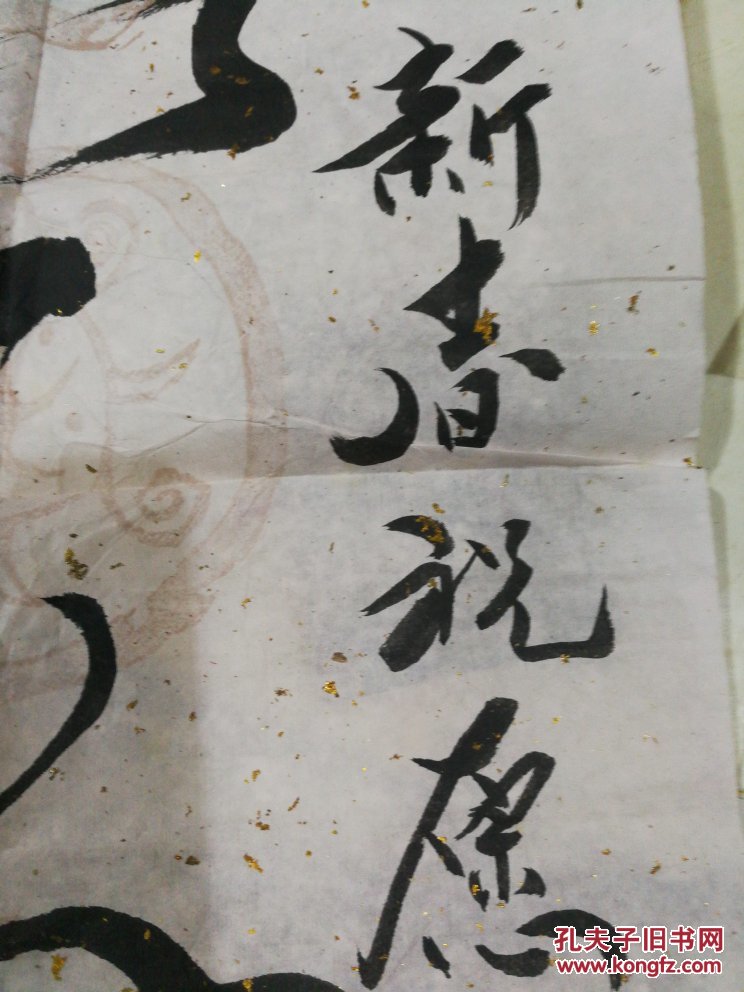 新春祝愿
孔夫子旧书网
www.kongfz.com